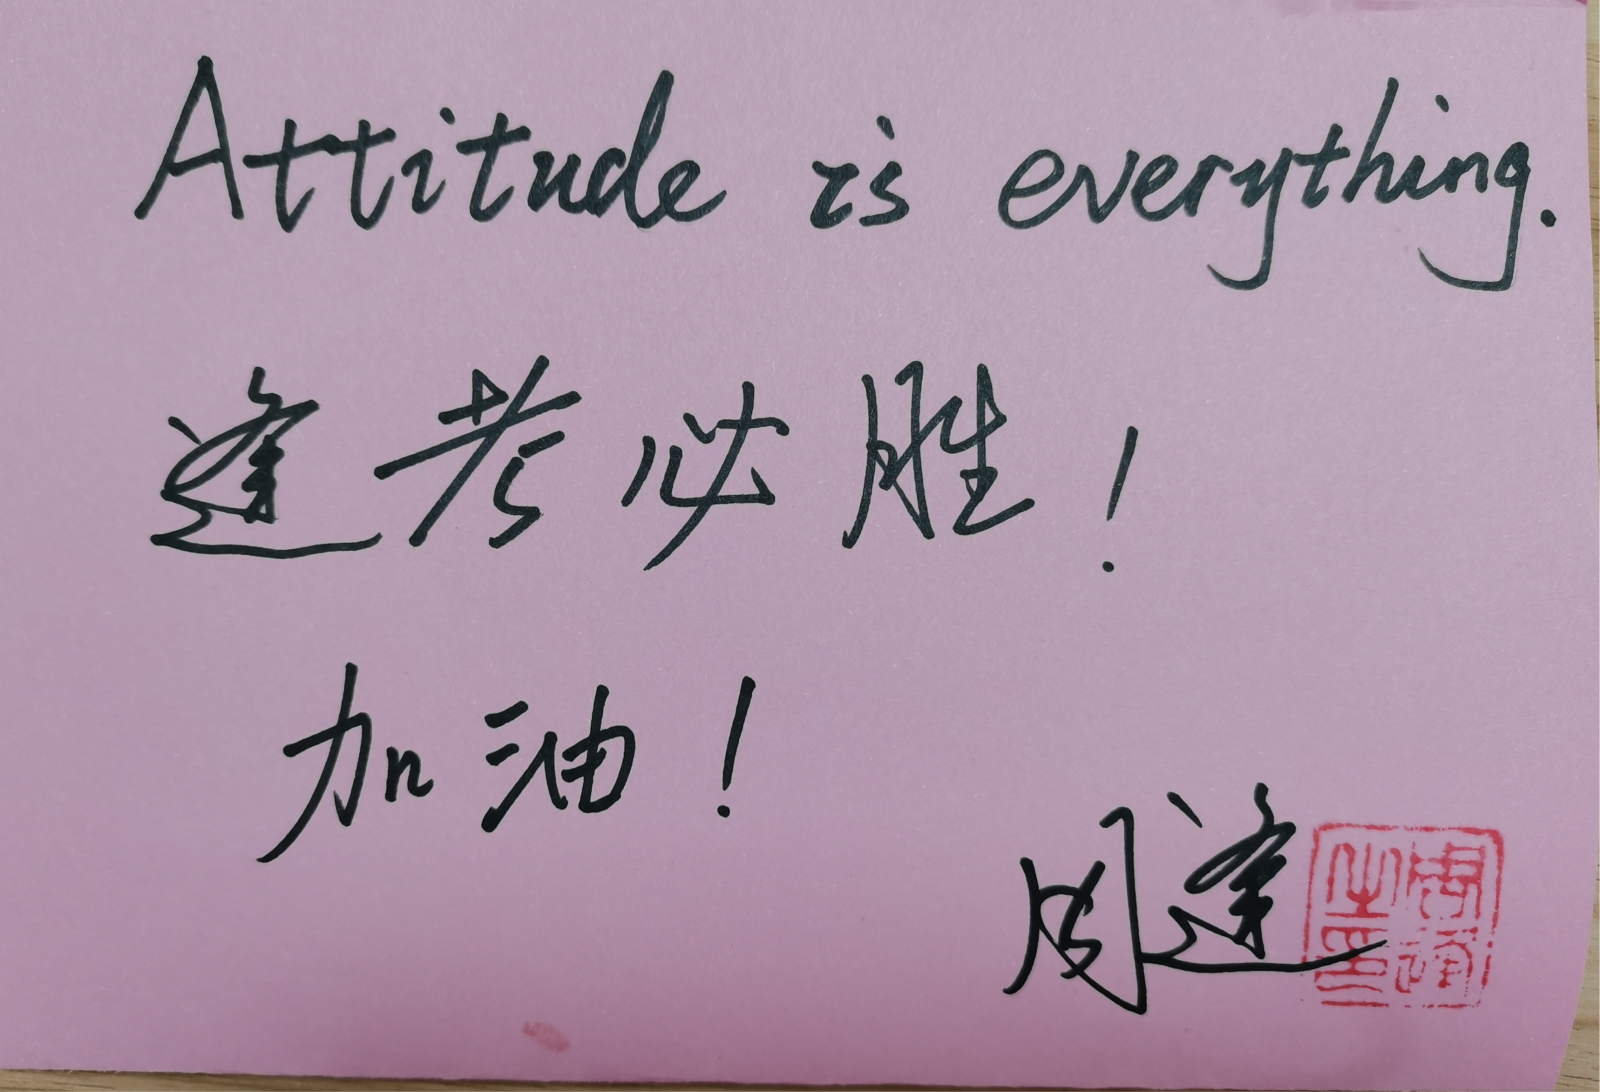 Attitude is everything.
逢考必胜！
加油！
周逢
周逢之印